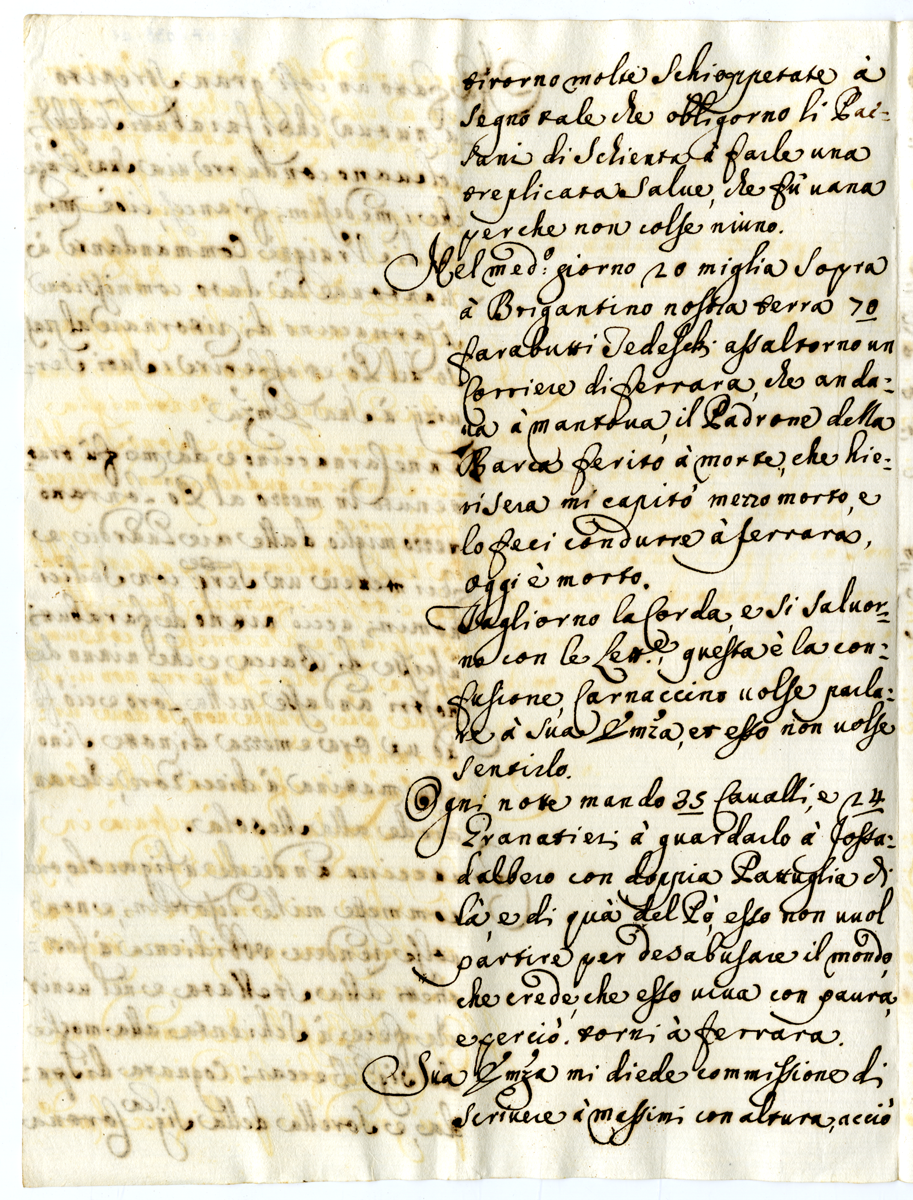 tirorno molte Schioppetate à
segno tale che obbligorno li Pae-
sani di Schienta à farle una
treplicata Salue, che fù uana
perche non colse niuno.
Nel med.º giorno 20 miglia Sopra
à Brigantino nostra terra 70
farabutti Tedeschi assaltorno un
Corriere di ferrara, che anda-
ua à mantoua, il Padrone della
Barca ferito à morte, che hie-
risera mi capitò mezzo morto, e
lo feci condurre à ferrara,
oggi è morto.
Tagliorno la Corda, e si saluor-
no con le Lett.e, questa è la con-
fusione, Carnaccino uolse parla-
re à Sua Emza, et esso non uolse
sentirlo.
Ogni notte mando 35 Caualli, e 24
Granatieri à guardarlo à fossa-
dalbero con doppia Pattuglia di
là, e di quà del Pò, esso non uuol
partire per desabusare il mondo,
che crede, che esso uiua con paura,
e perciò torni à ferrara.
Sua Emza mi diede commissione di
scriuere à massimi con altura, acciò